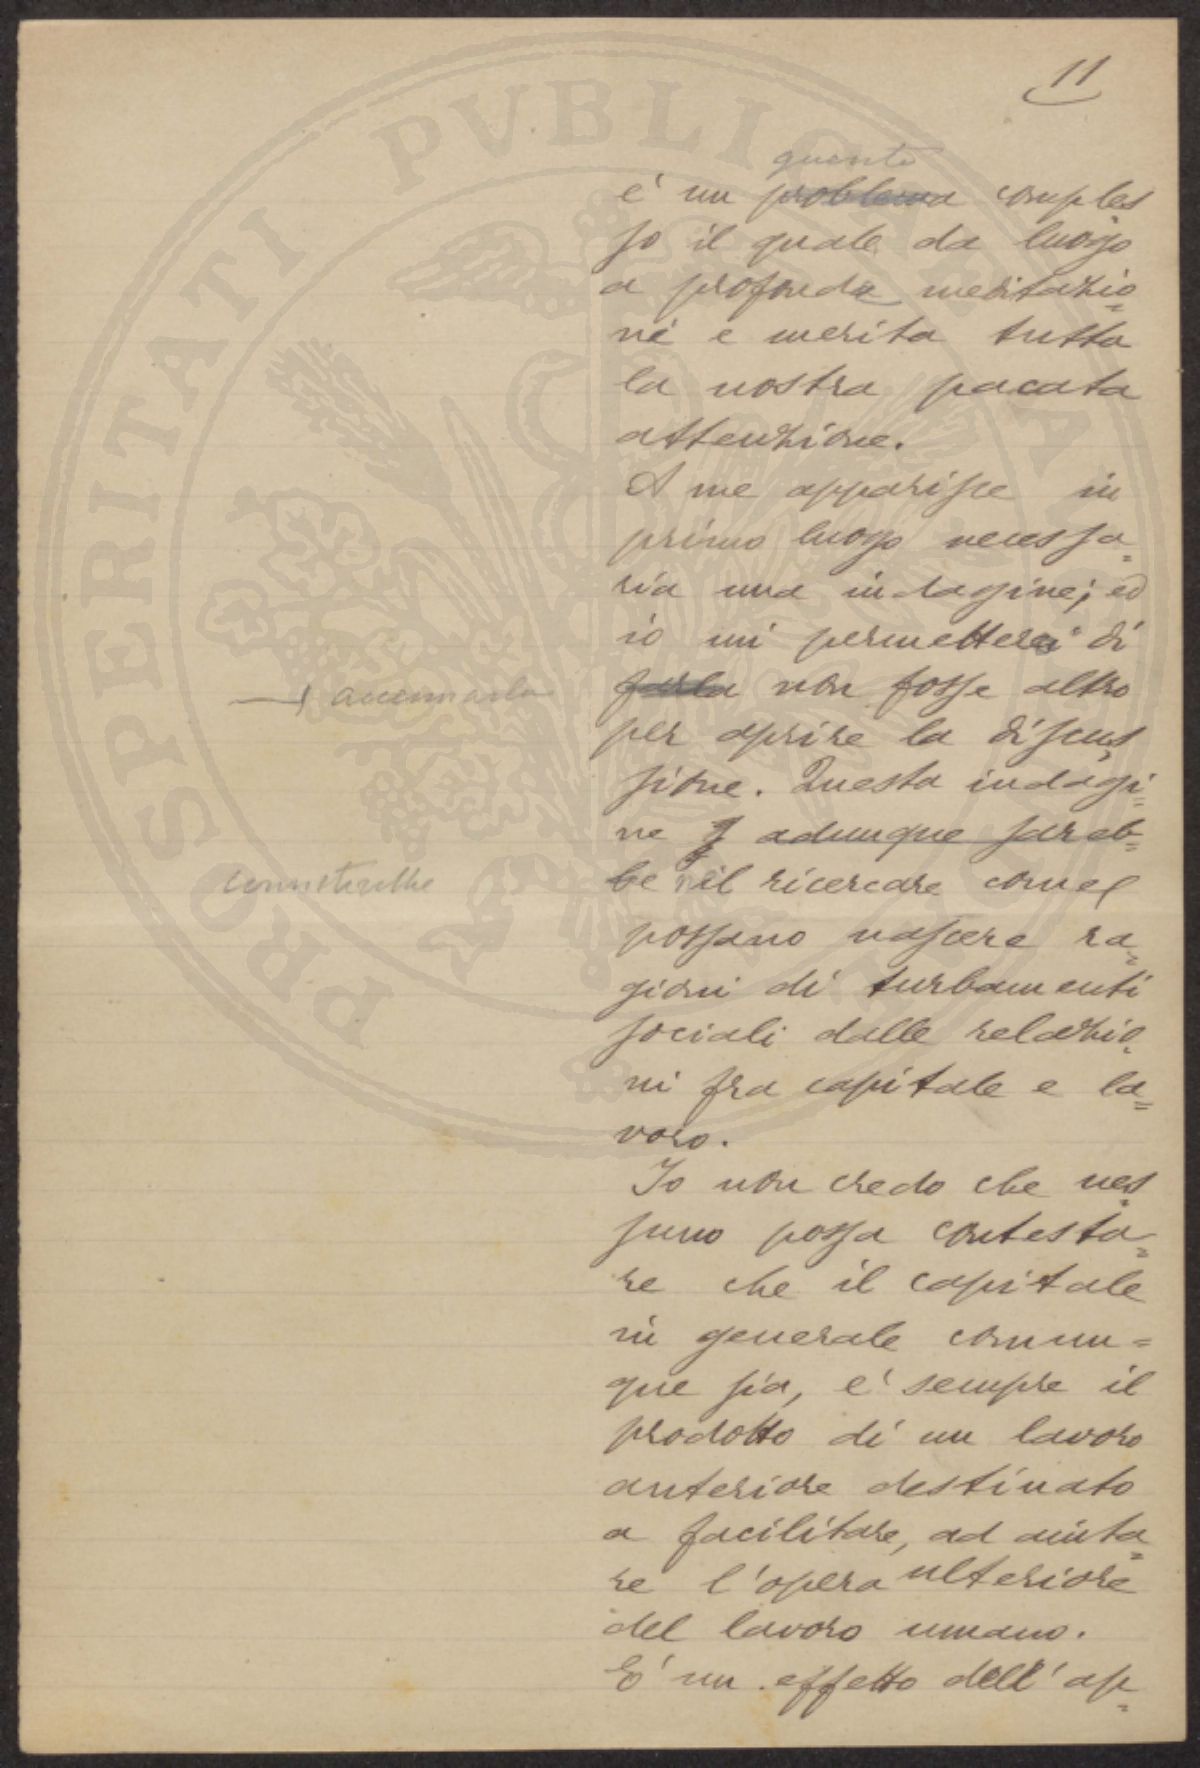 11
quesito
é un problema comples
so il quale da luogo
a profonda meditazio=
ne e merita tutta
la nostra pacata
attenzione.
A me apparisce in
primo luogo necessa=
ria una indagine; ed
io mi permetterei di
accennarla
farla non fosse altro
per aprire la discus=
sione. Questa indagi=
ne adunque sareb=
connetterebbe
be nel ricercare come
possano nascere ra=
gioni di turbamenti
sociali dalle relazio=
ni fra capitale e la=
voro.
Io non credo che nes=
suno possa contesta=
re che il capitale
in generale comun=
que sia, e' sempre il
prodotto di un lavoro
anteriore destinato
a facilitare, ad aiuta=
re l'opera ulteriore
del lavoro umano.
E' un effetto dell'ap=
PROSPERITATI PVBLICAE